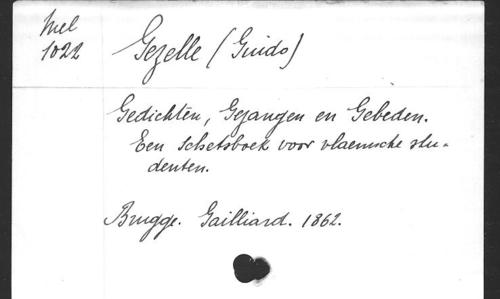 Mel
1022
Gezelle (Guido)
Gedichten, Gezangen en Gebeden.
Een Schetsboek voor vlaemsche stu-
denten.
Brugge. Gailliard. 1862.